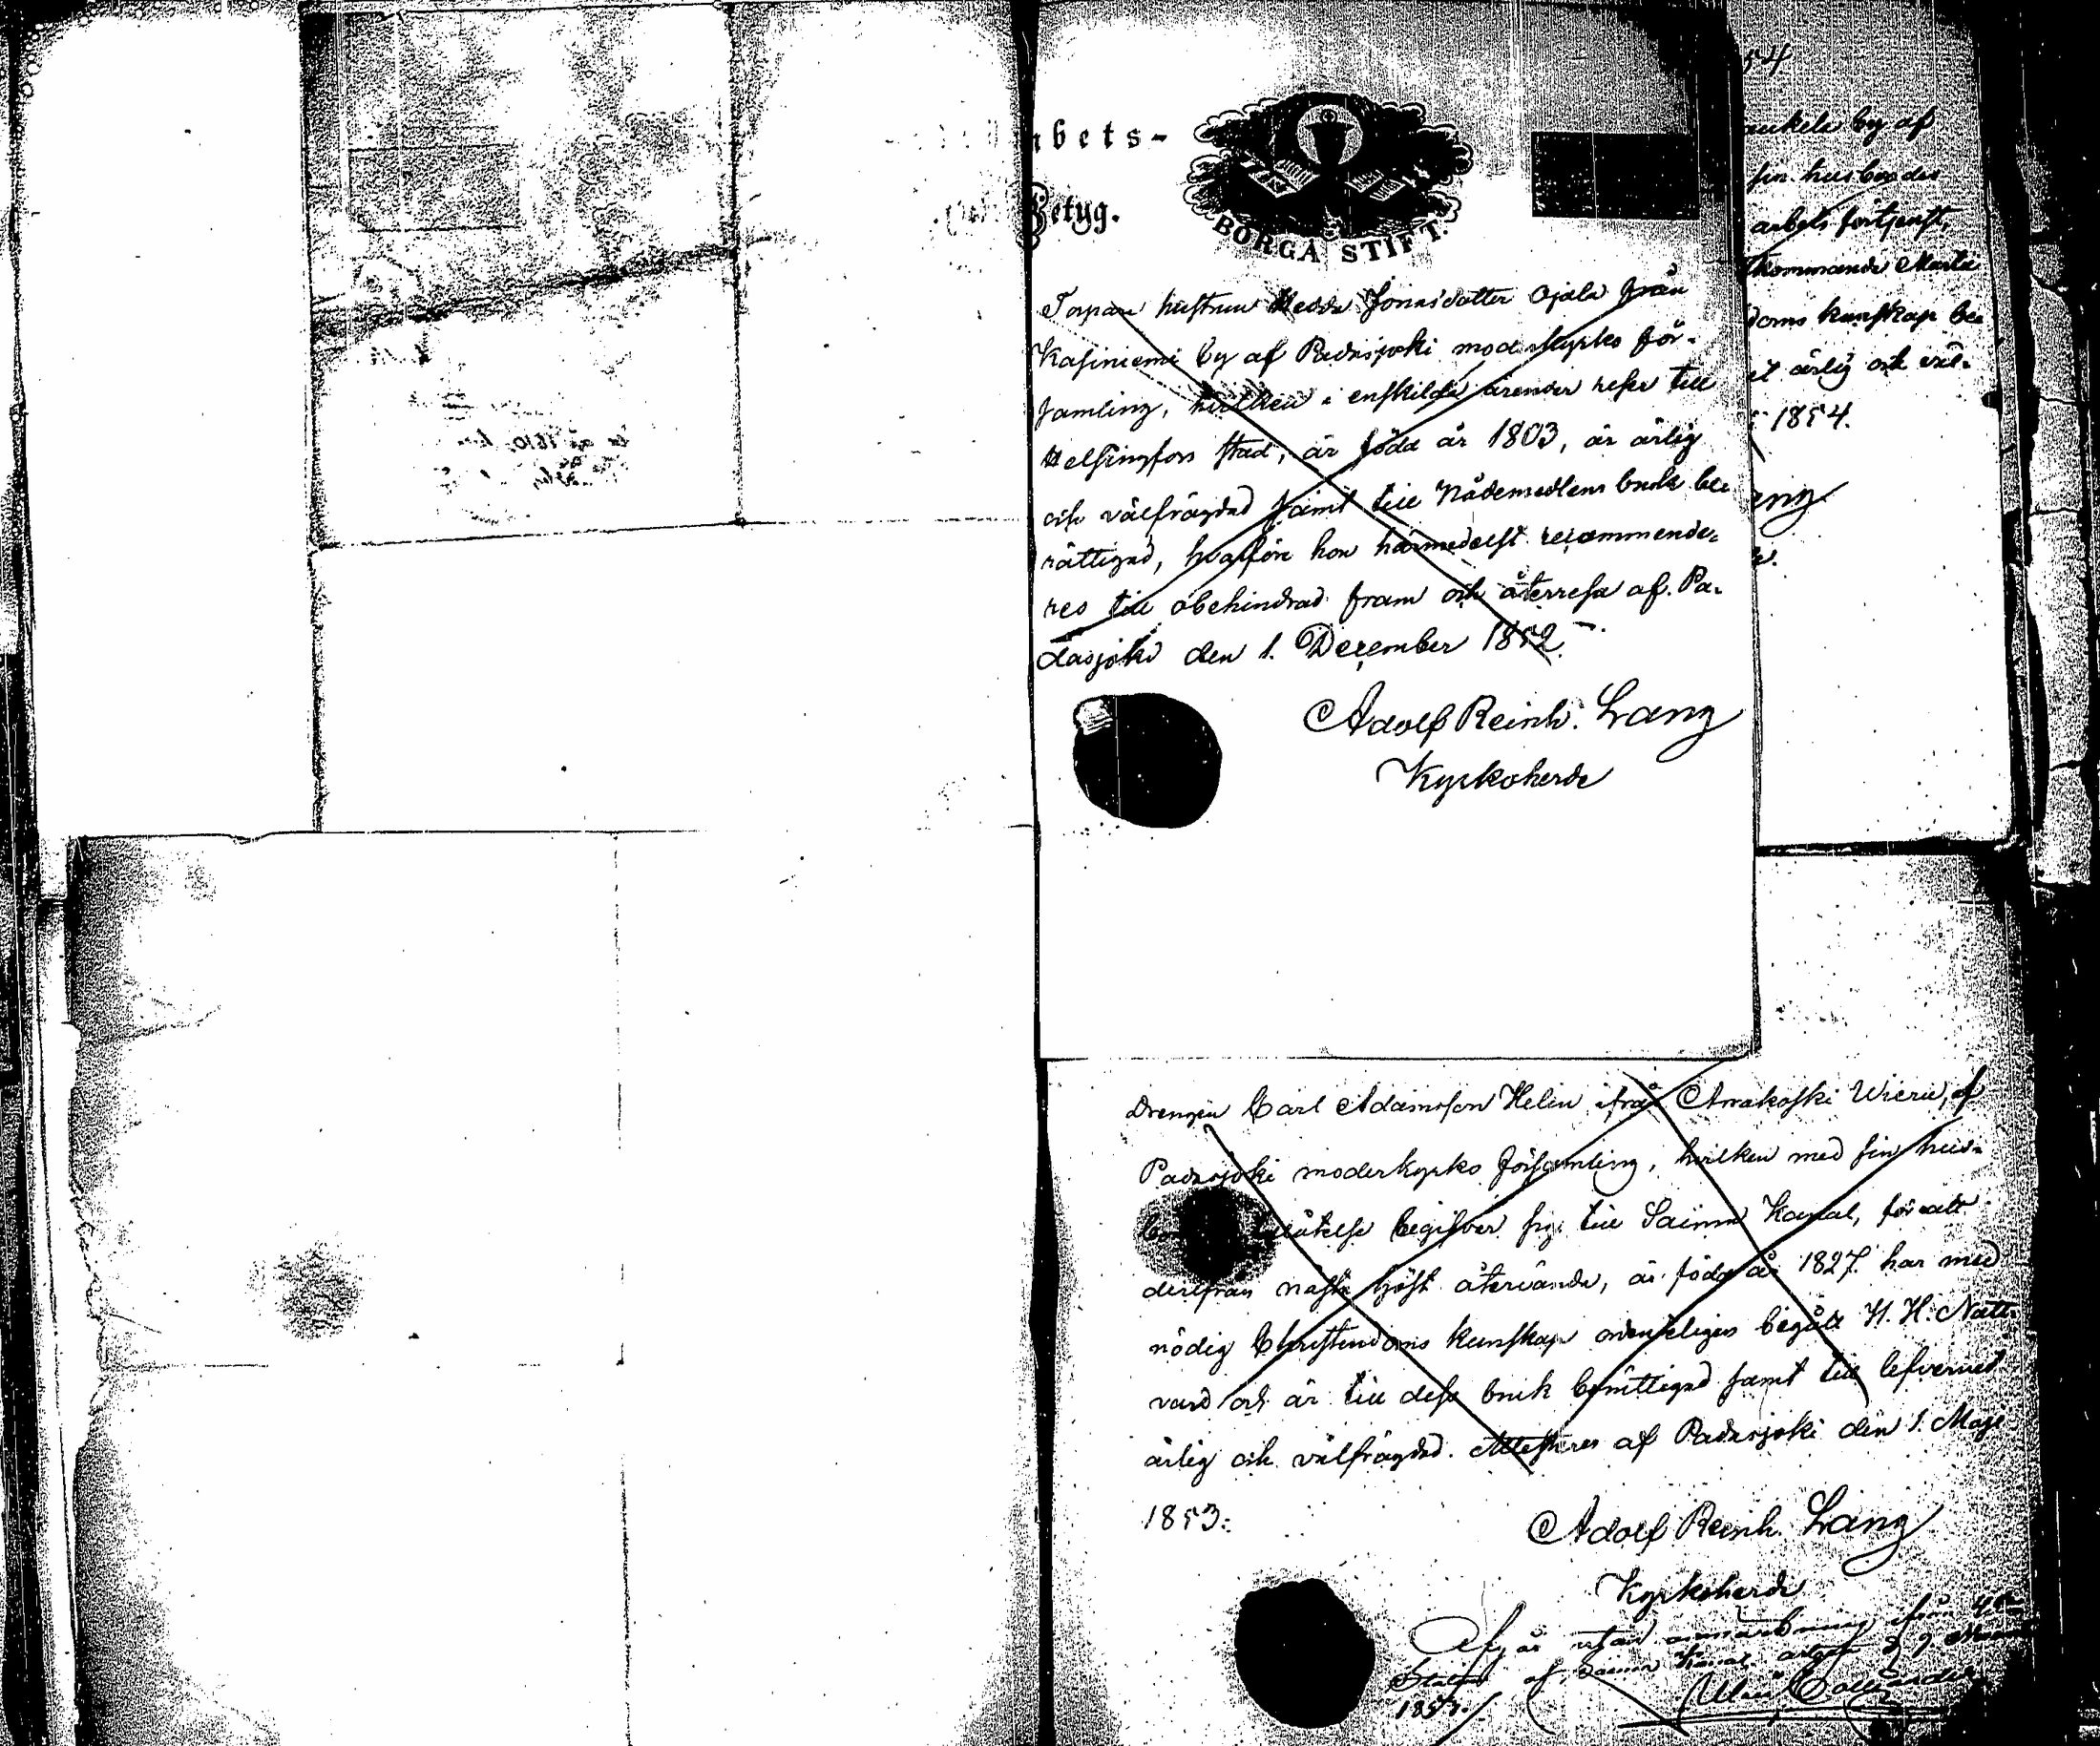 bets-
Betyg.
BORGÅ STIFT.
Torpare hustrun Hedda Jonasdotter Ojala från
Kasiniemi by af Padasjoki moderkyrko för-
samling, hvilken i enskilda ärender reser till
Helsingfors stad, är född år 1803, är ärlig
och välfrägdad samt till Nådemedlens bruk be-
rättigad, hvarföre hon härmedelst recommende-
res till obehindrad fram och återresa af Pa-
dasjoki den 1. December 1852.
Adolf Reinh. Lang
Kyrkoherde
54
by af
sin husbondes
arbets förtjenst,
kommande Martii
doms kunskap be-
et ärlig och väl-
1854.
ang
Drengen Carl Adamsson Helin ifrån Arrakoski Wieru, af
Padasjoki moderkyrko församling, hvilken med sin hus-
låtelse begifver sig till Saima Kanal, för att
derifrån nästa höst återvända, är född år 1827. har med
nödig Christendoms kunskap ordenteligen begått H. H. Natt-
vard och är till dess bruk berättigad samt till lefvernet
ärlig och välfrägdad. Attesteres af Padasjoki den 1. Maji
1853.
Adolf Reinh. Lang
Kyrkoherde
Afgår utan anmärkning ifrån
Station af Saima Kanal
1853.